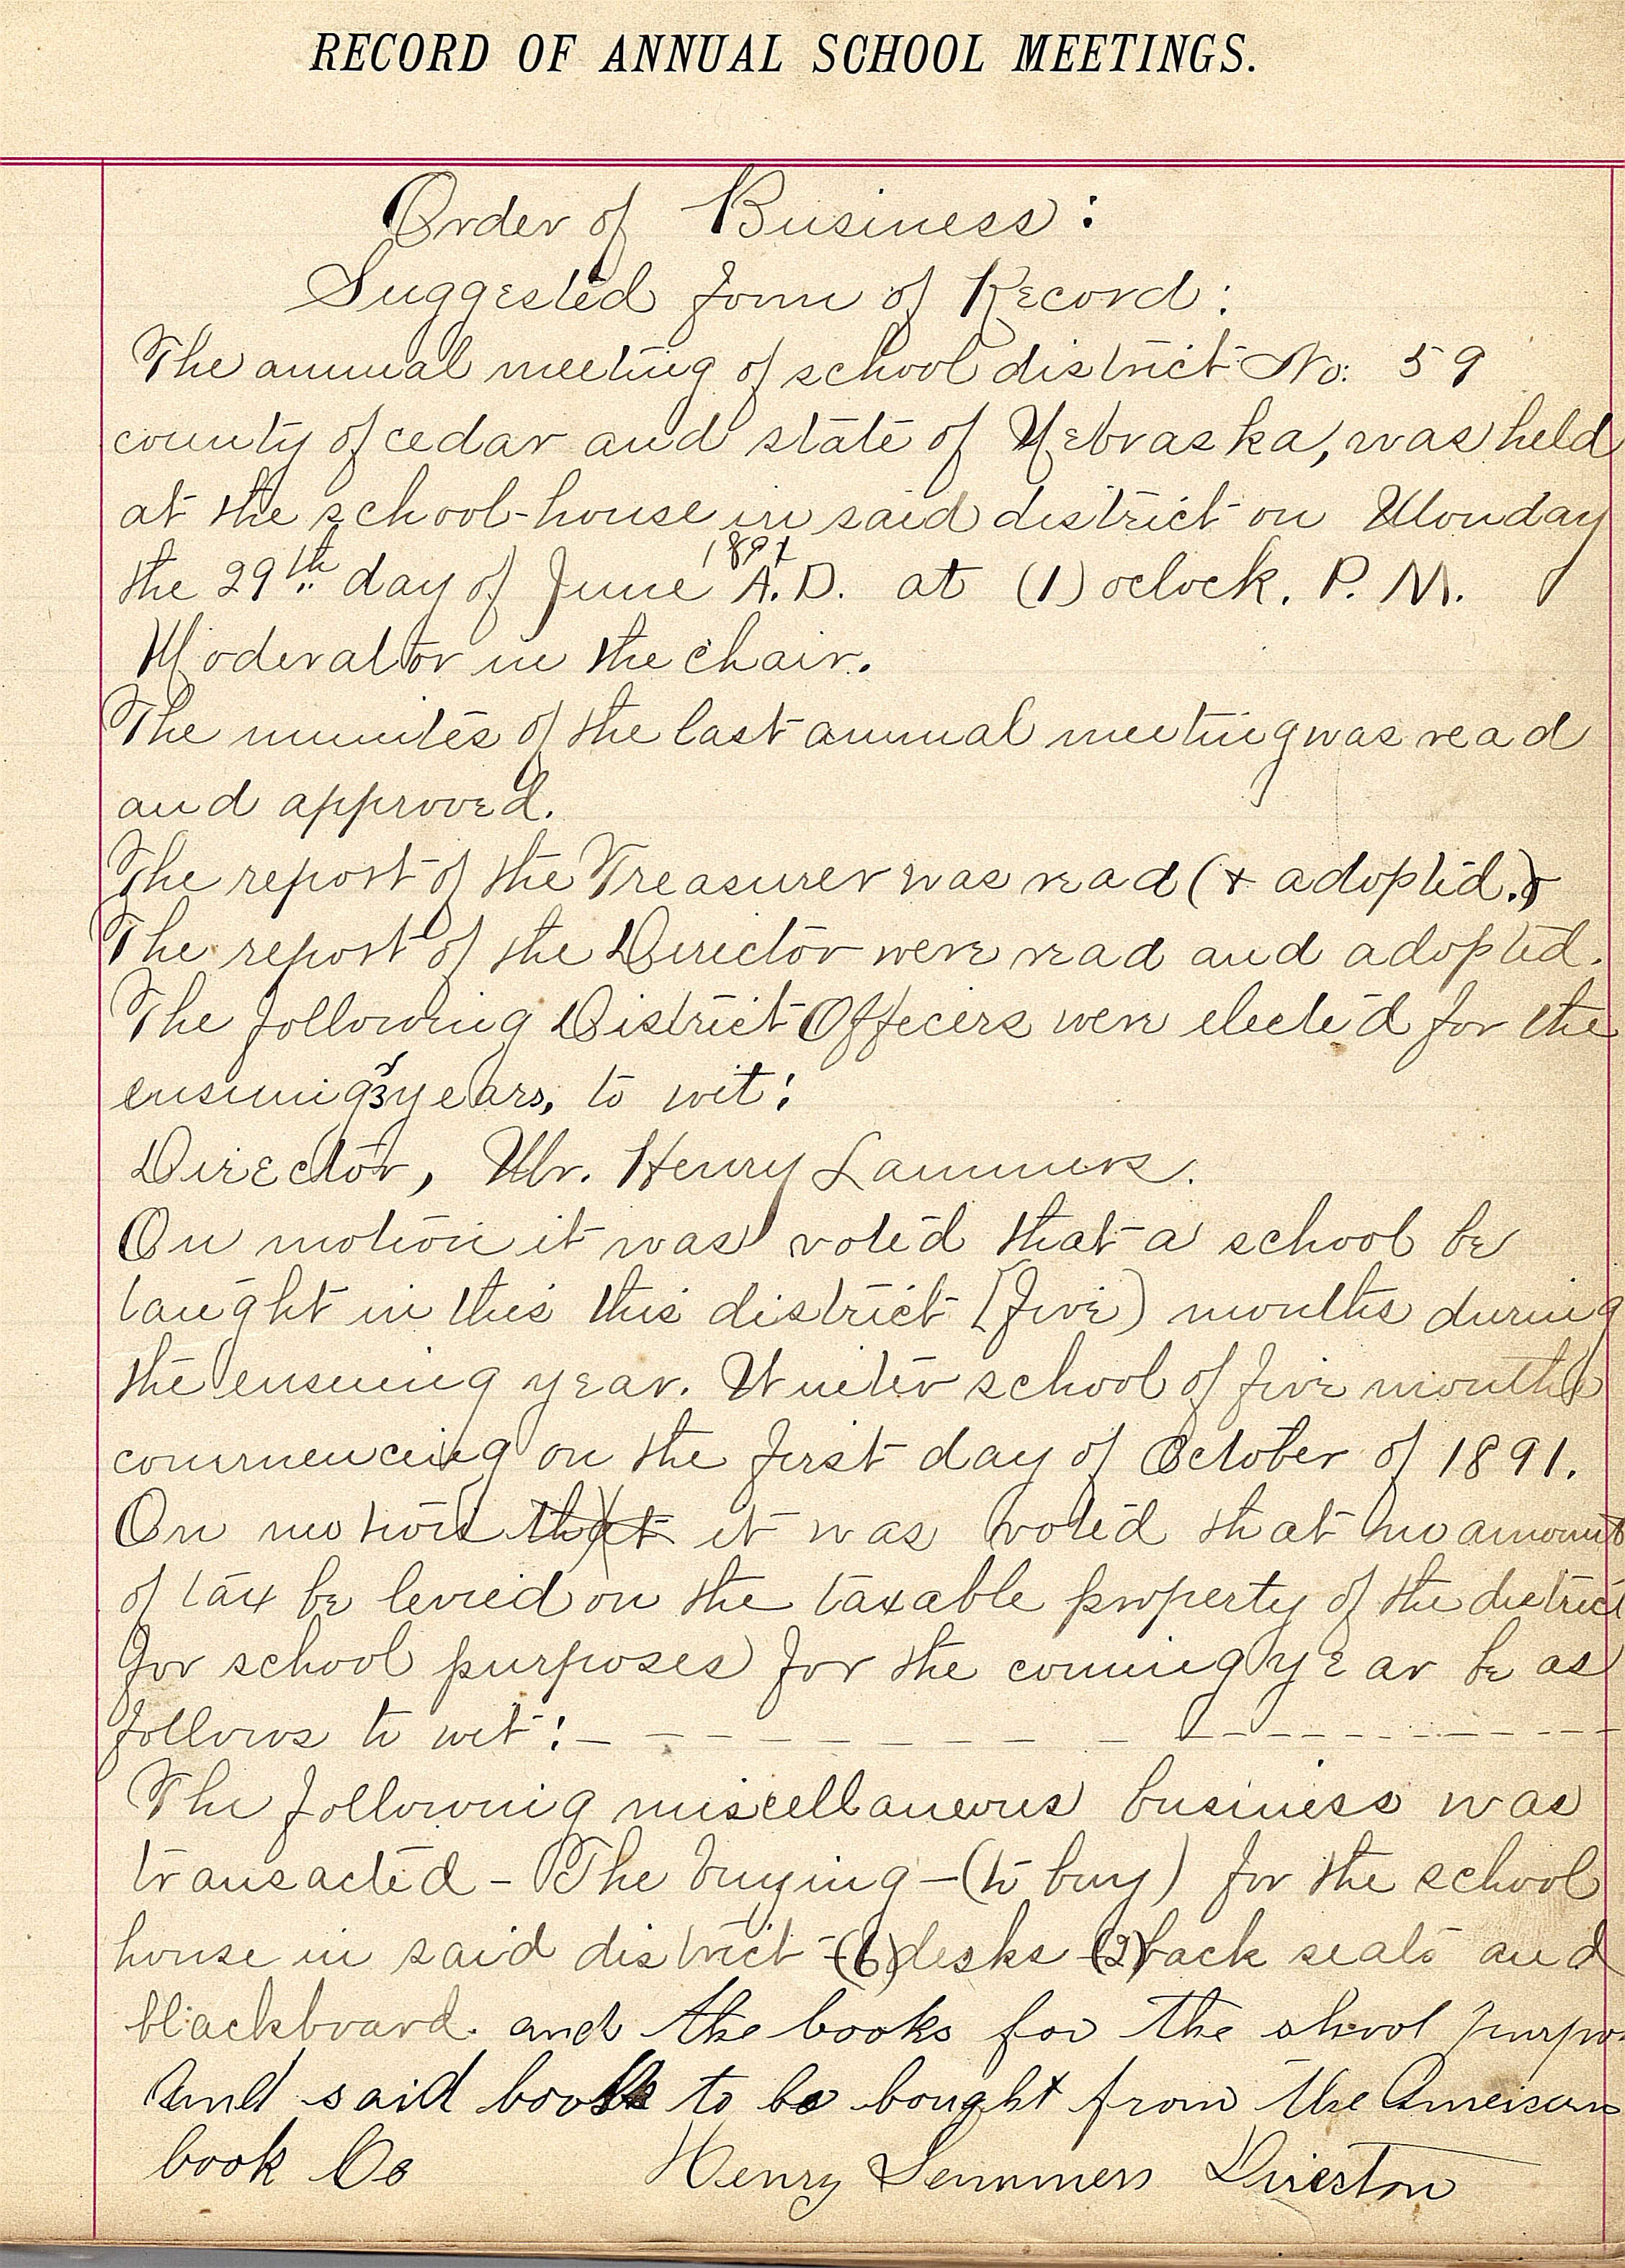 RECORD OF ANNUAL SCHOOL MEETINGS.
Order of Business:
Suggested form of Record:
The annual meeting of school district No: 59
county of cedar and state of Nebraska, was held
at the school-house in said district on Monday
1891
the 29th day of June A.D. at (1) oclock. P. M.
Moderator in the chair.
The minutes of the last annual meeting was read
and approved.
The report of the Treasurer was read (+ adopted.)
The report of the Director were read and adopted.
The following District Officers were elected for the
ensuing 3 years, to wit:
Director, Mr. Henry Lammers.
On motion it was voted that a school be
taught in this this district [five) months during
the ensuing year. Winter school of five months
commencing on the first day of October of 1891.
On motion that it was voted that no amount
of tax be levied on the taxable property of the district
for school purposes for the coming year be as
follows to wit: –
The following miscellaneous business was
transacted – The buying – (to buy) for the school
house in said district – (6) desks – (2) back seats and
blackboard. and the books for the shool purpos
And said books to be bought from the Ameican
book Co Henry Lemmers Director